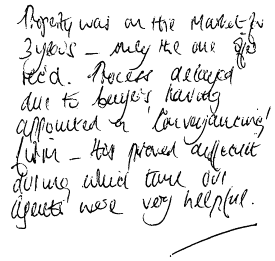 Property was on the market for
3 years – only the one offer
rec'd. Process delayed
due to buyers having
appointed a 'Conveyancing'
firm – this proved difficult
during which time our
agents were very helpful.